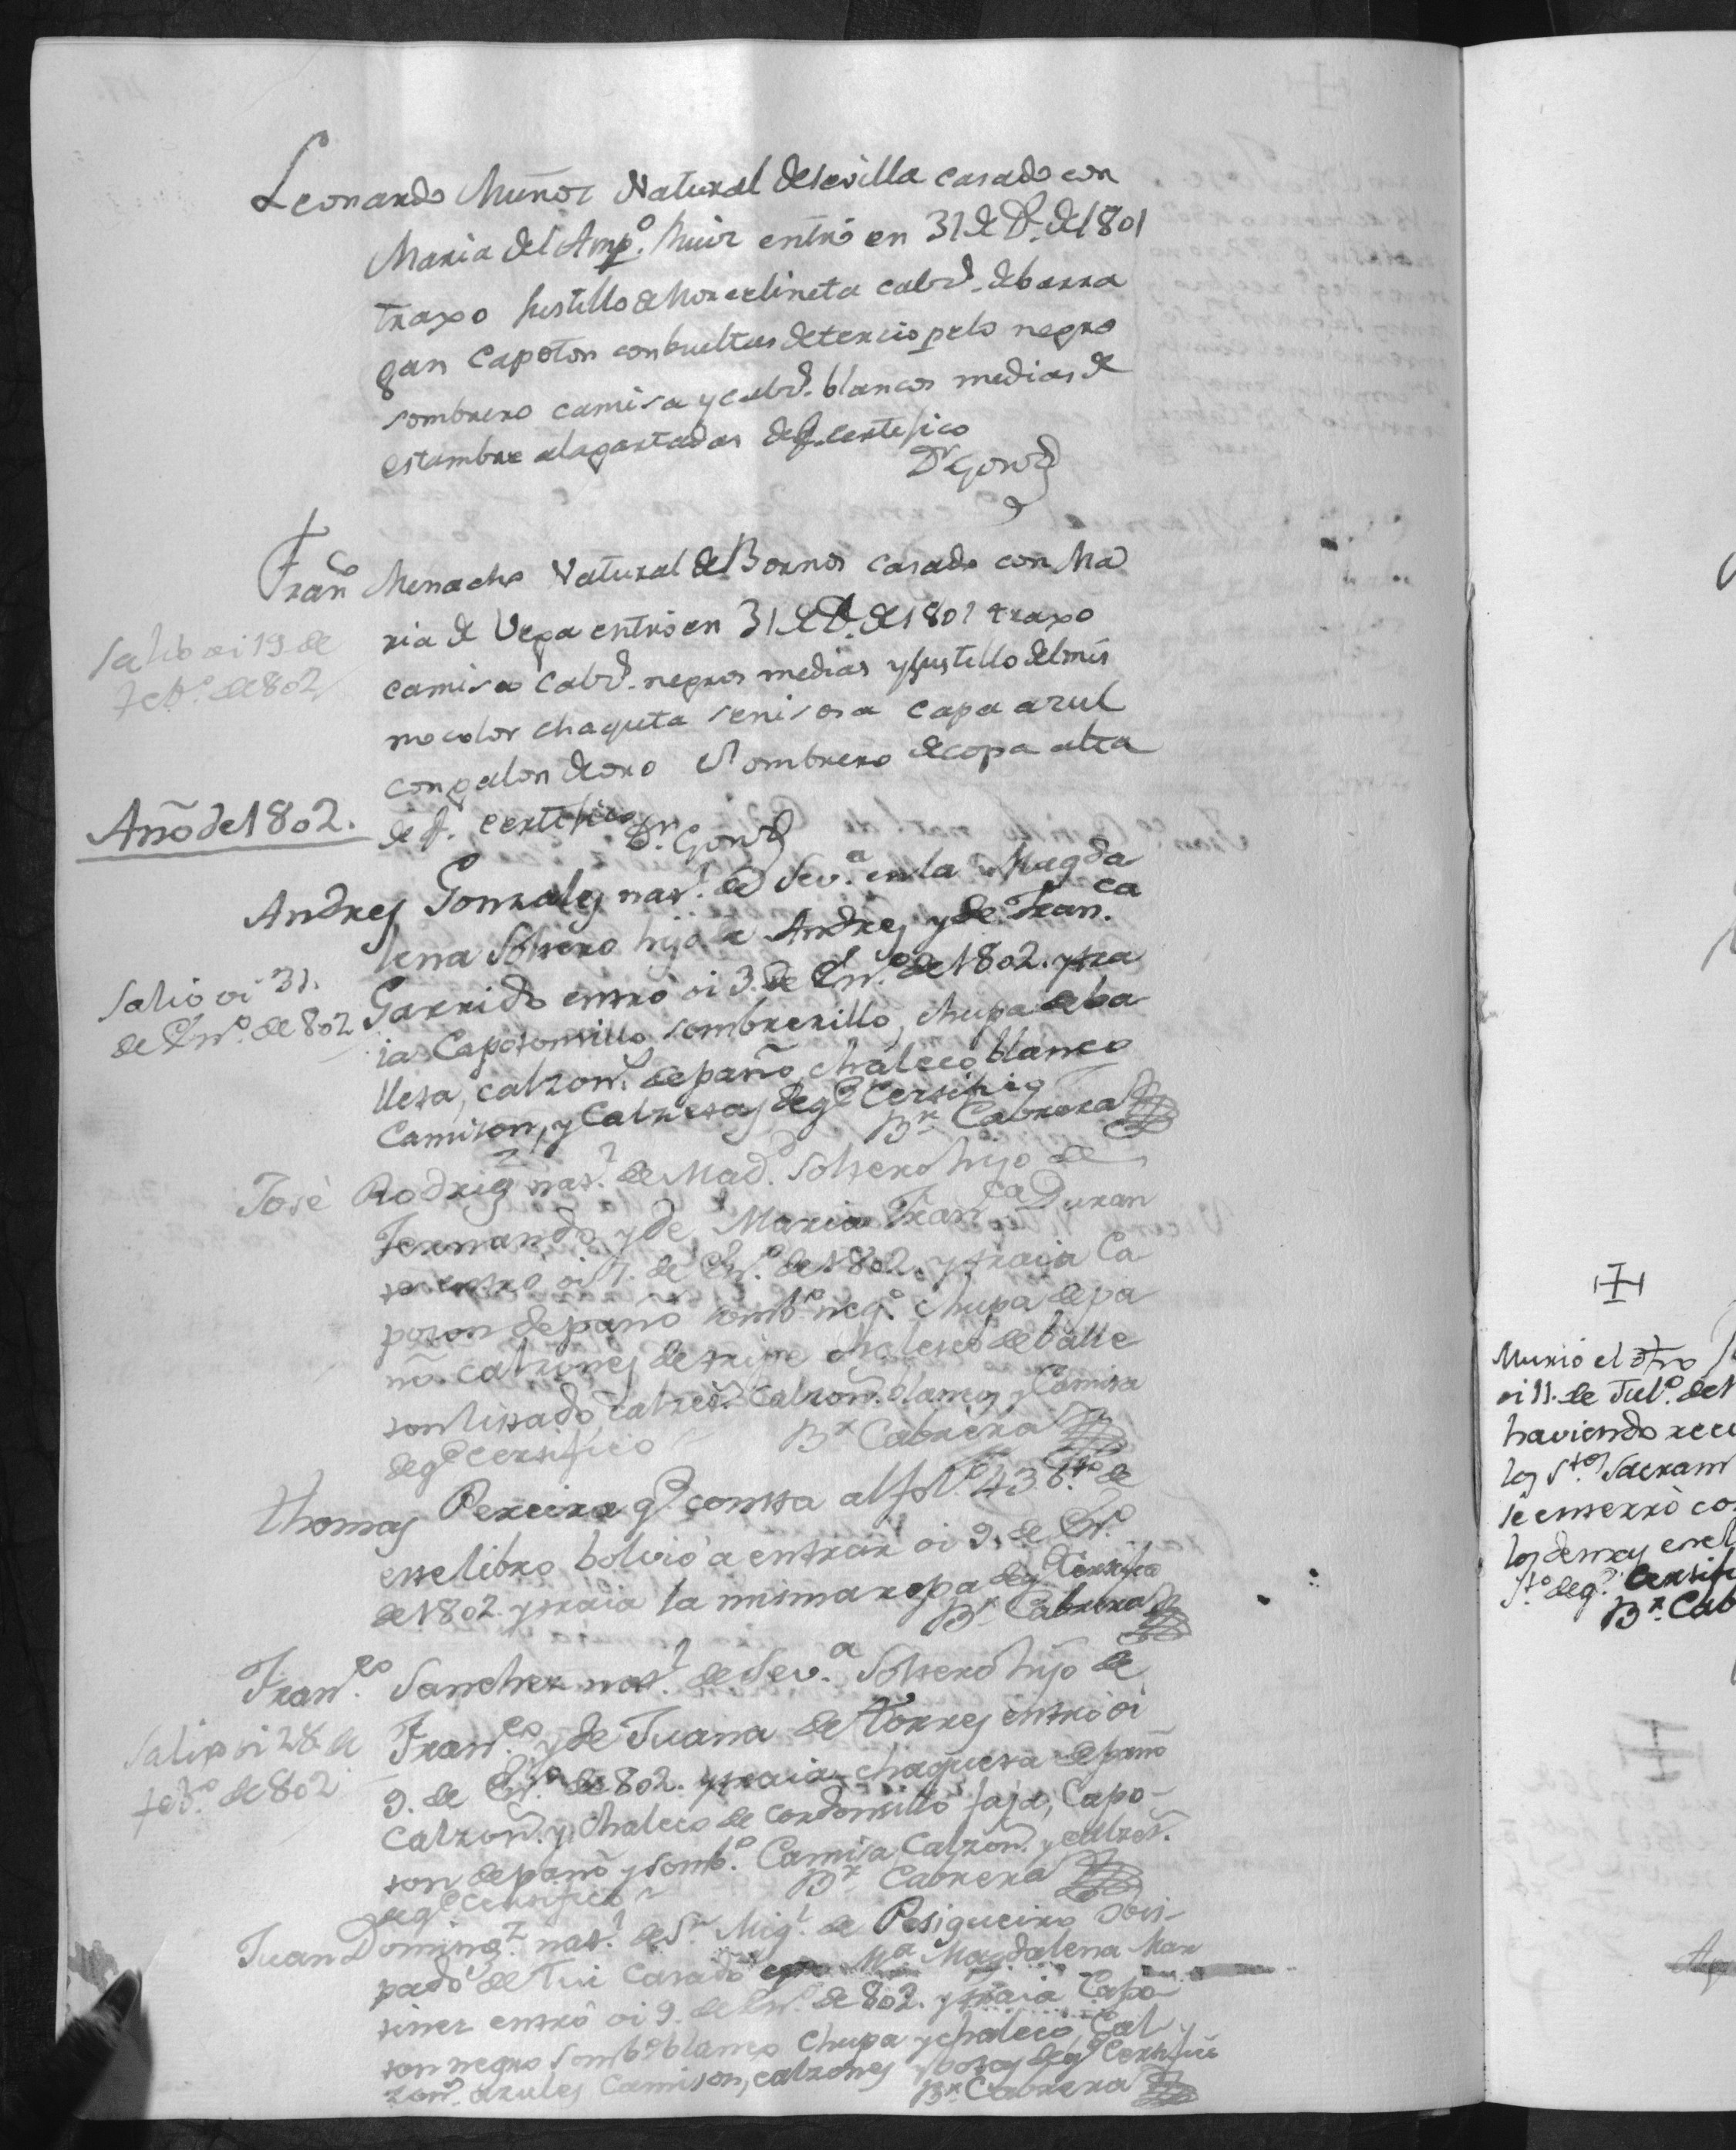 Leonardo Muñoz Natural de Sevilla casado con
Maria del Amp.º Ruiz entró en 31 de D.e de 1801
traxo justillo de calz.s de barra
gan capoton con bueltas de tercio pelo negro
sombrero camisa y calz.s blancos medias de
estambre alagartadas de q.e certefico
D.r Gonz
Fran.co Menacho Natural de Bornos casado con Ma
ria de Vega entró en 31 de D.e de 1801 traxo
camisa calz.s negros medias y justillo del mis
mo color chaqueta senisosa capa azul
con galon de oro Sombrero de copa alta
de q.e certefico D.r Gonz
Salió oi 19 de
feb.º de 802
Año de 1802.
Andres Gonzales nat.l de Sev.a en la Magda
lena Soltero hijo de Andres y de Fran.ca
Garrido entró oi 3 de En.º de 1802. y tra
ia Capotonsillo, sombrerillo, chupa de ba
lleta, calzon.s de paño, chaleco blanco
Camison, y Calzetas de q.e Certifico
B.r Cabrera
Salió oi 31.
de En.º de 802
José Rodrig.z nat.l de Mad.d Soltero hijo de
Fernando y de Maria Fran.ca Duran
entró oi 7. de En.º de 1802. y traia Ca
poton de paño somb.º neg.º chupa de pa
ño calzones de tripe chaleco de balle
ton listado, calzet.s Calzon.s blancos y Camisa
de q.e certifico B.r Cabrera
Thomas Pereira q.e consta al fol.º 436. de
este libro bolvió a entrar oi 9. de En.º
de 1802 y traia la misma ropa de q.e Certifico
B.r Cabrera
Fran.co Sanchez nat.l de Sev.a Soltero hijo de
Fran.co y de Juana de Torres entró oi
9. de En.º de 802. y traia chaqueta de paño
Calzon.s y chaleco de cordonsillo faja, Capo-
ton de paño y somb.º Camisa Calzon.s y calzet.s
de q.e certifico B.r Cabrera
Salió oi 28 de
feb.º de 802
Juan Doming.z nat.l de S.n Mig.l de Pesigueiro Obis-
pado de Tui Casado con M.a Magdalena Mar
tinez entró oi 9. de En.º de 802. y traia Capo
ton negro Somb.º blanco chupa y chaleco, Cal
zon.s azules Camison, calzones y botas de q.e Certifico
B.r Cabrera
Murió el otro
oi 11. de Jul.º de 1
haviendo rec
los S.tos Sacram
se enterró co
los demas en el
S.to de q.e Certifi
B.r Cab